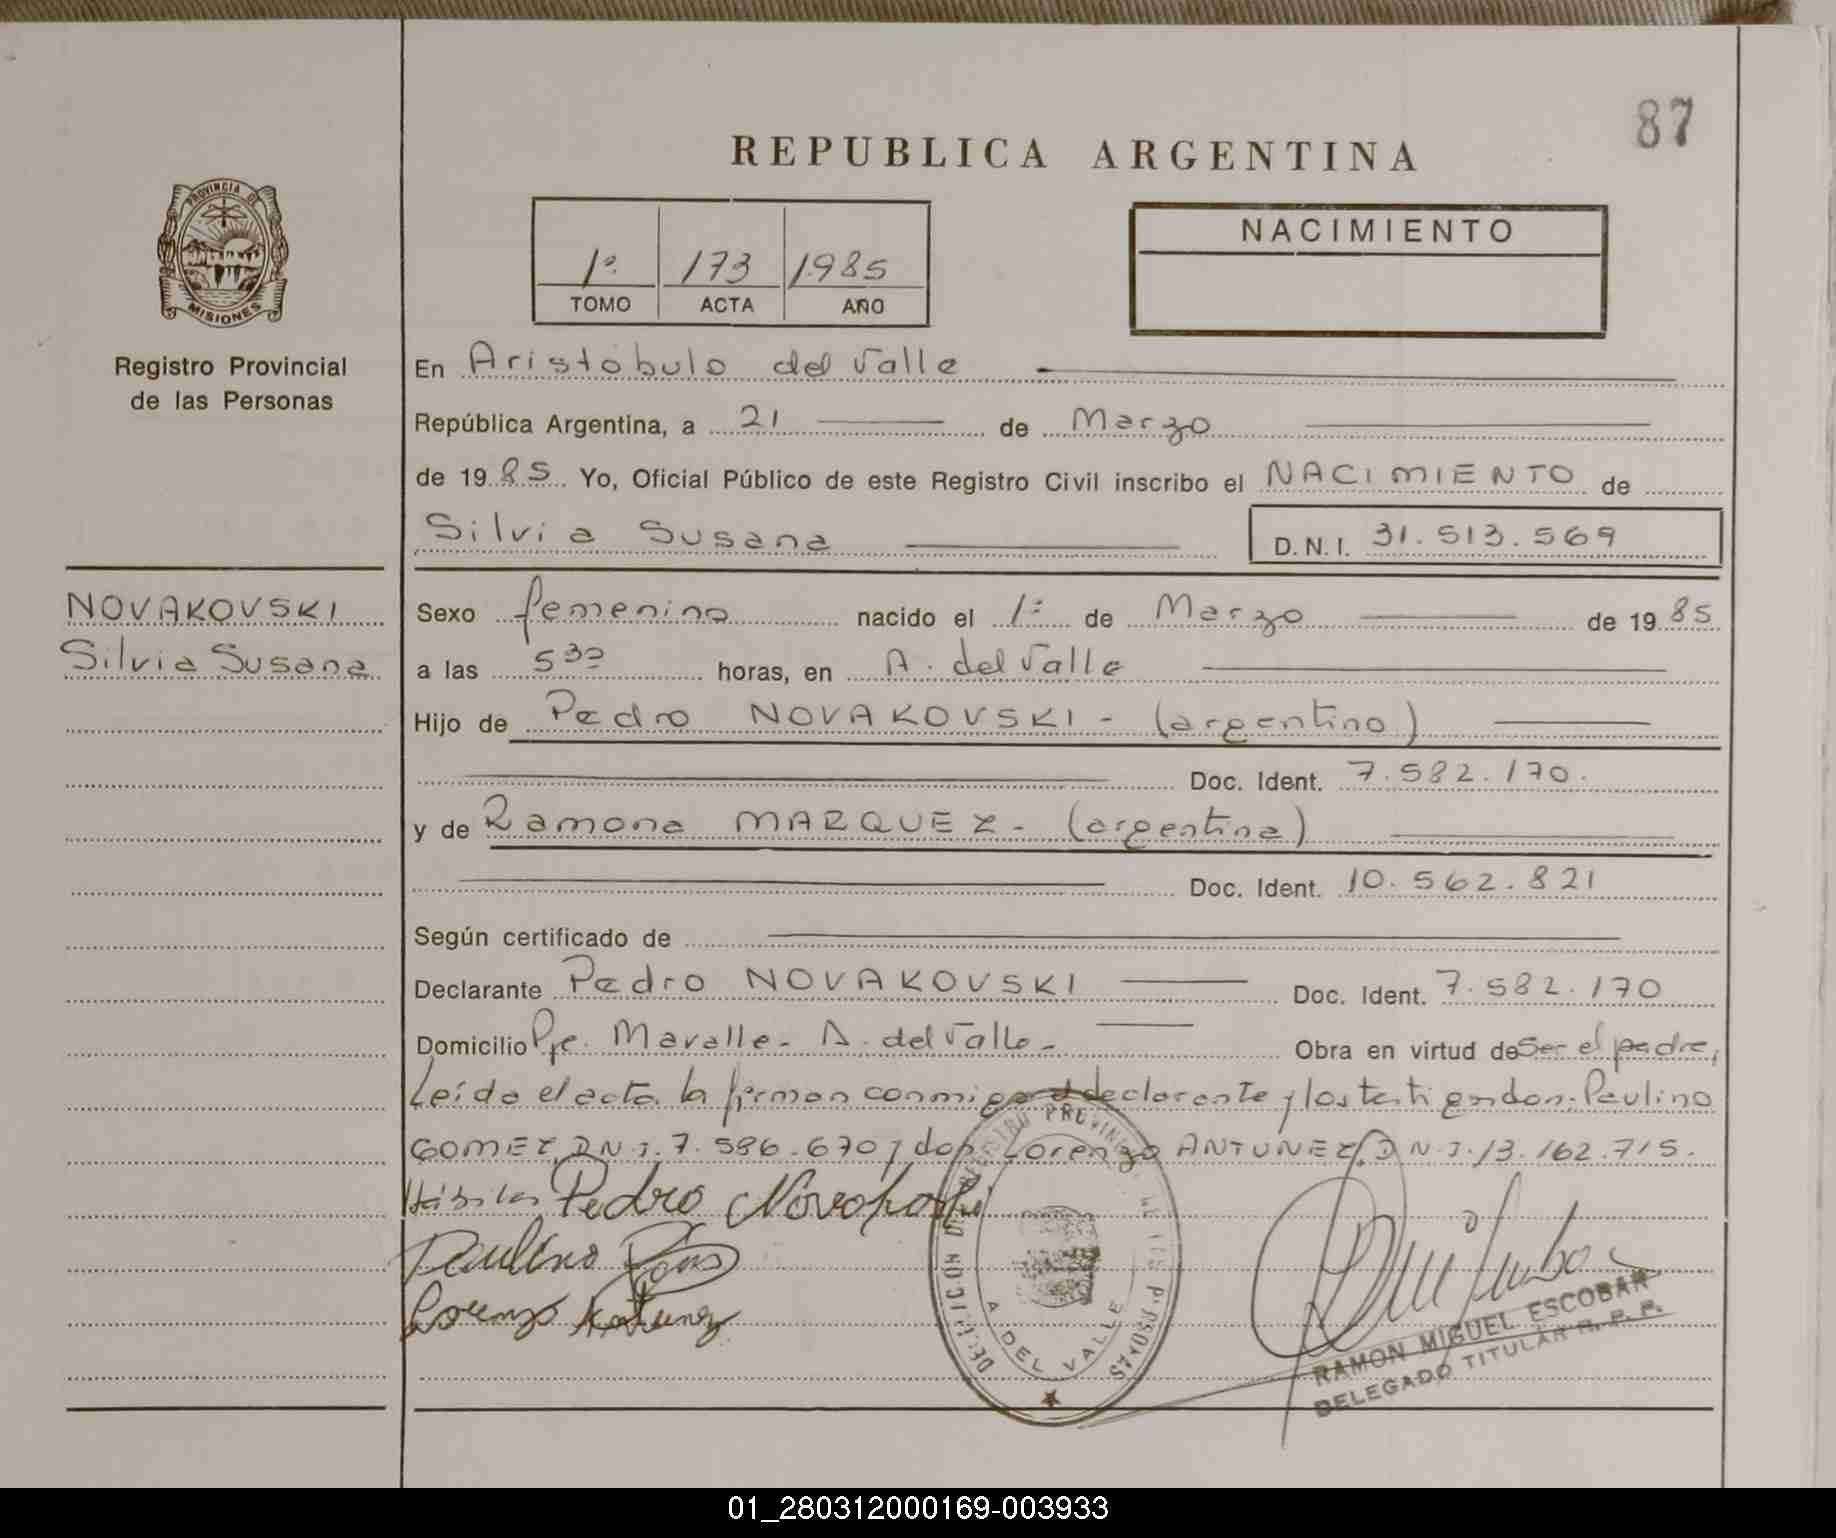 87
REPUBLICA ARGENTINA
PROVINCIA DE
MISIONES
Registro Provincial
de las Personas
1º 173 1985
TOMO ACTA AÑO
NACIMIENTO
En Aristóbulo del Valle
República Argentina, a 21 de Marzo
de 1985 Yo, Oficial Público de este Registro Civil inscribo el NACIMIENTO de
Silvia Susana D.N.I. 31.513.569
NOVAKOVSKI
Silvia Susana
Sexo femenino nacido el 1º de Marzo de 1985
a las 5 30 horas, en A. del Valle
Hijo de Pedro NOVAKOVSKI - (argentino)
Doc. Ident. 7.582.170.
y de Ramona MARQUEZ - (argentina)
Doc. Ident. 10.562.821
Según certificado de
Declarante Pedro NOVAKOVSKI Doc. Ident. 7.582.170
Domicilio Pje. Mavalle - A. del Valle - Obra en virtud de Ser el padre,
Leída el acta la firman conmigo el declarante y los testigos don: Paulino
GOMEZ, D.N.I. 7.586.670 y don Lorenzo ANTUNEZ, D.N.I. 13.162.715.
Hábiles Pedro
Paulino
Lorenzo Antunez
A DEL VALLE
RAMON MIGUEL ESCOBAR
DELEGADO TITULAR R. P. P.
01_280312000169-003933